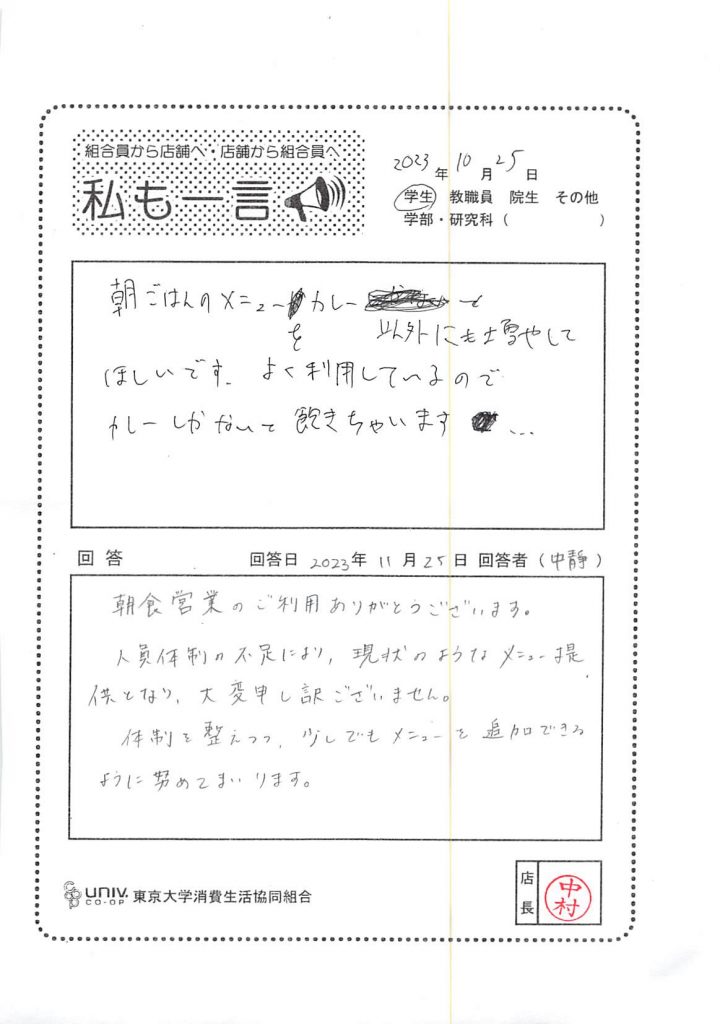 組合員から店舗へ・店舗から組合員へ
私も一言
2023年10月25日
学生 教職員 院生 その他
学部・研究科( )
朝ごはんのメニューをカレー
以外にも増やして
ほしいです。よく利用しているので
カレーしかないと飽きちゃいます…
回答 回答日 2023年11月25日 回答者(中静)
朝食営業のご利用ありがとうございます。
人員体制の不足により、現状のようなメニュー提
供となり、大変申し訳ございません。
体制を整えつつ、少しでもメニューを追加できる
ように努めてまいります。
UNIV. CO-OP 東京大学消費生活協同組合
店長 中村